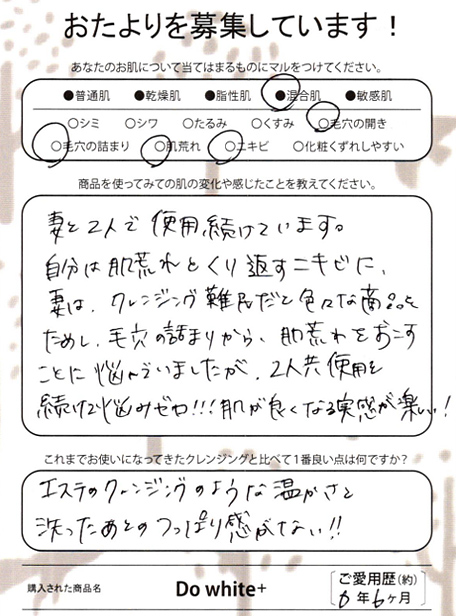 おたよりを募集しています！
あなたのお肌について当てはまるものにマルをつけてください。
●普通肌 ●乾燥肌 ●脂性肌 ●混合肌 ●敏感肌
○シミ ○シワ ○たるみ ○くすみ ○毛穴の開き
○毛穴の詰まり ○肌荒れ ○ニキビ ○化粧くずれしやすい
商品を使ってみての肌の変化や感じたことを教えてください。
妻と2人で使用続けています。
自分は肌荒れとくり返すニキビに、
妻は、クレンジング難民だと色々な商品を
ためし、毛穴の詰まりから、肌荒れをおこす
ことに悩んでいましたが、2人共使用を
続けて悩みゼロ!!!肌が良くなる実感が楽しい!
これまでお使いになってきたクレンジングと比べて1番良い点は何ですか?
エステのクレンジングのような温かさと
洗ったあとのつっぱり感がない!!
購入された商品名 Do white+ ご愛用歴(約)
0年6ヶ月